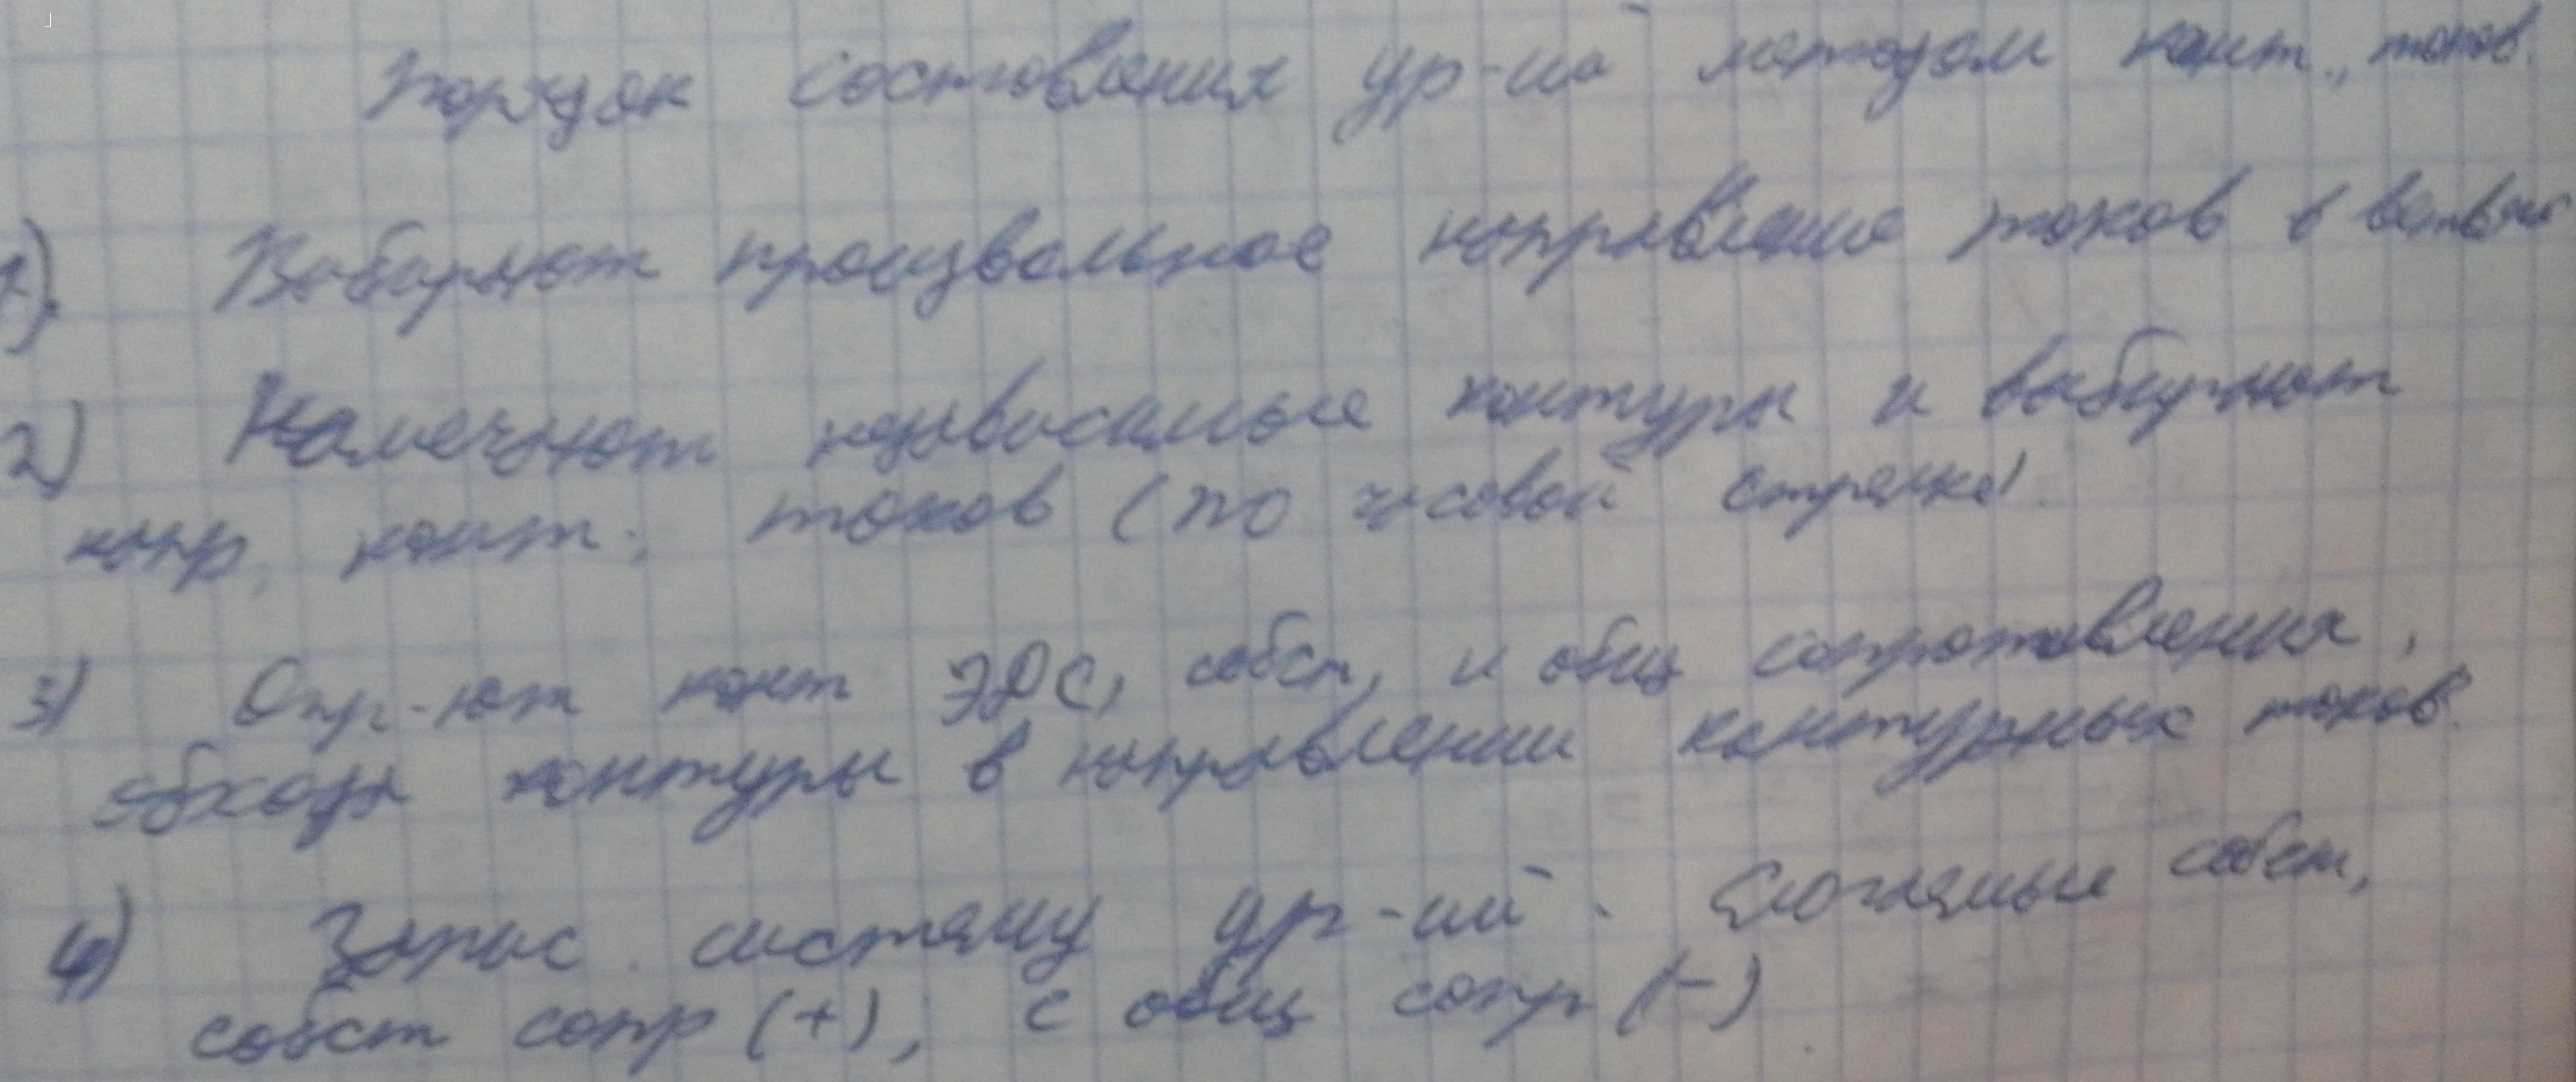 Порядок составления ур-ий методом конт., токов.
1). Выбирают произвольное направление токов в ветвях
2) Намечают независимые контуры и выбирают
напр, конт. токов (по часовой стрелке).
3) Опр-ют конт ЭДС, собст, и общ сопротивления,
обходя контуры в направлении контурных токов.
4) Запис. систему ур-ий. Слогаемые собст,
собст сопр (+), с общ сопр (-)